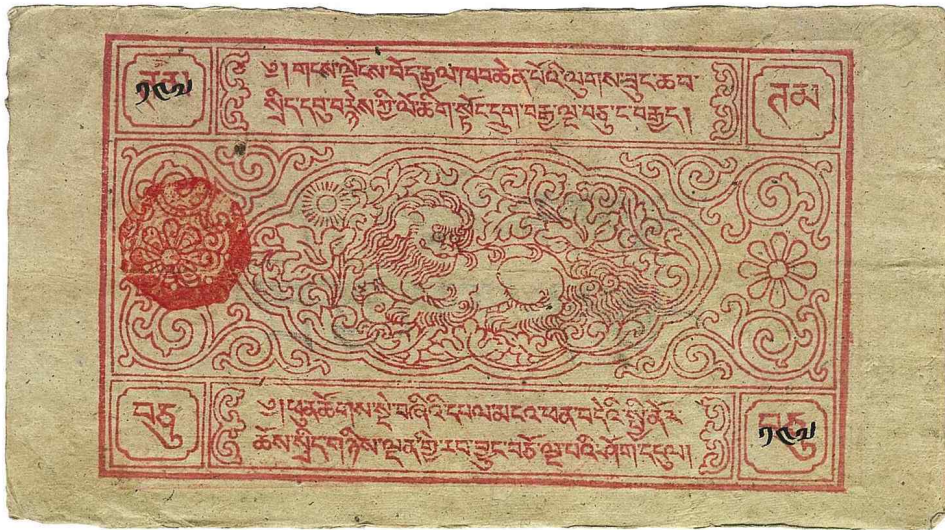 ༄། །གངས་ལྗོངས་བོད་རྒྱལ་ཁབ་ཆེན་པོའི་ལུགས་ཟུང་ཆབ་
སྲིད་དབུ་བརྙེས་ཀྱི་ལོ་ཆིག་སྟོང་དྲུག་བརྒྱ་ལྔ་བཅུ་ང་བརྒྱད།
ཊམ
བཅུ
༄། །ཕུན་ཚོགས་སྡེ་བཞིའི་དཔལ་མངའ་ཕན་བདེའི་སྤྱི་ནོར
ཆོས་སྲིད་གཉིས་ལྡན་གྱི་རབ་བྱུང་བཅོ་ལྔ་པའི་ཤོག་དངུལ།
བཅུ